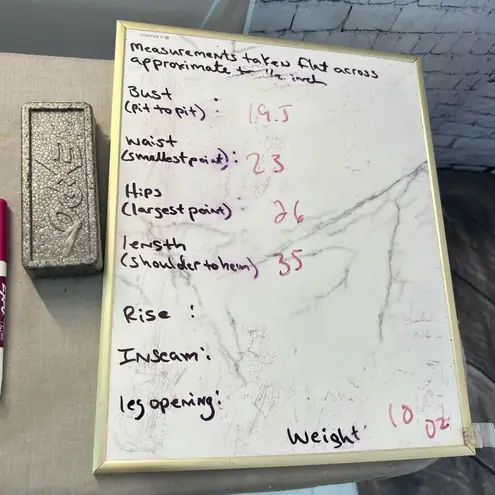 measurements taken flat across
approximate to 1/2 inch
Bust
(pit to pit) : 19.5
waist
(smallest point) : 23
Hips
(largest point) : 26
length
(shoulder to hem) 35
Rise :
Inseam :
leg opening :
Weight 10 oz
EXPO